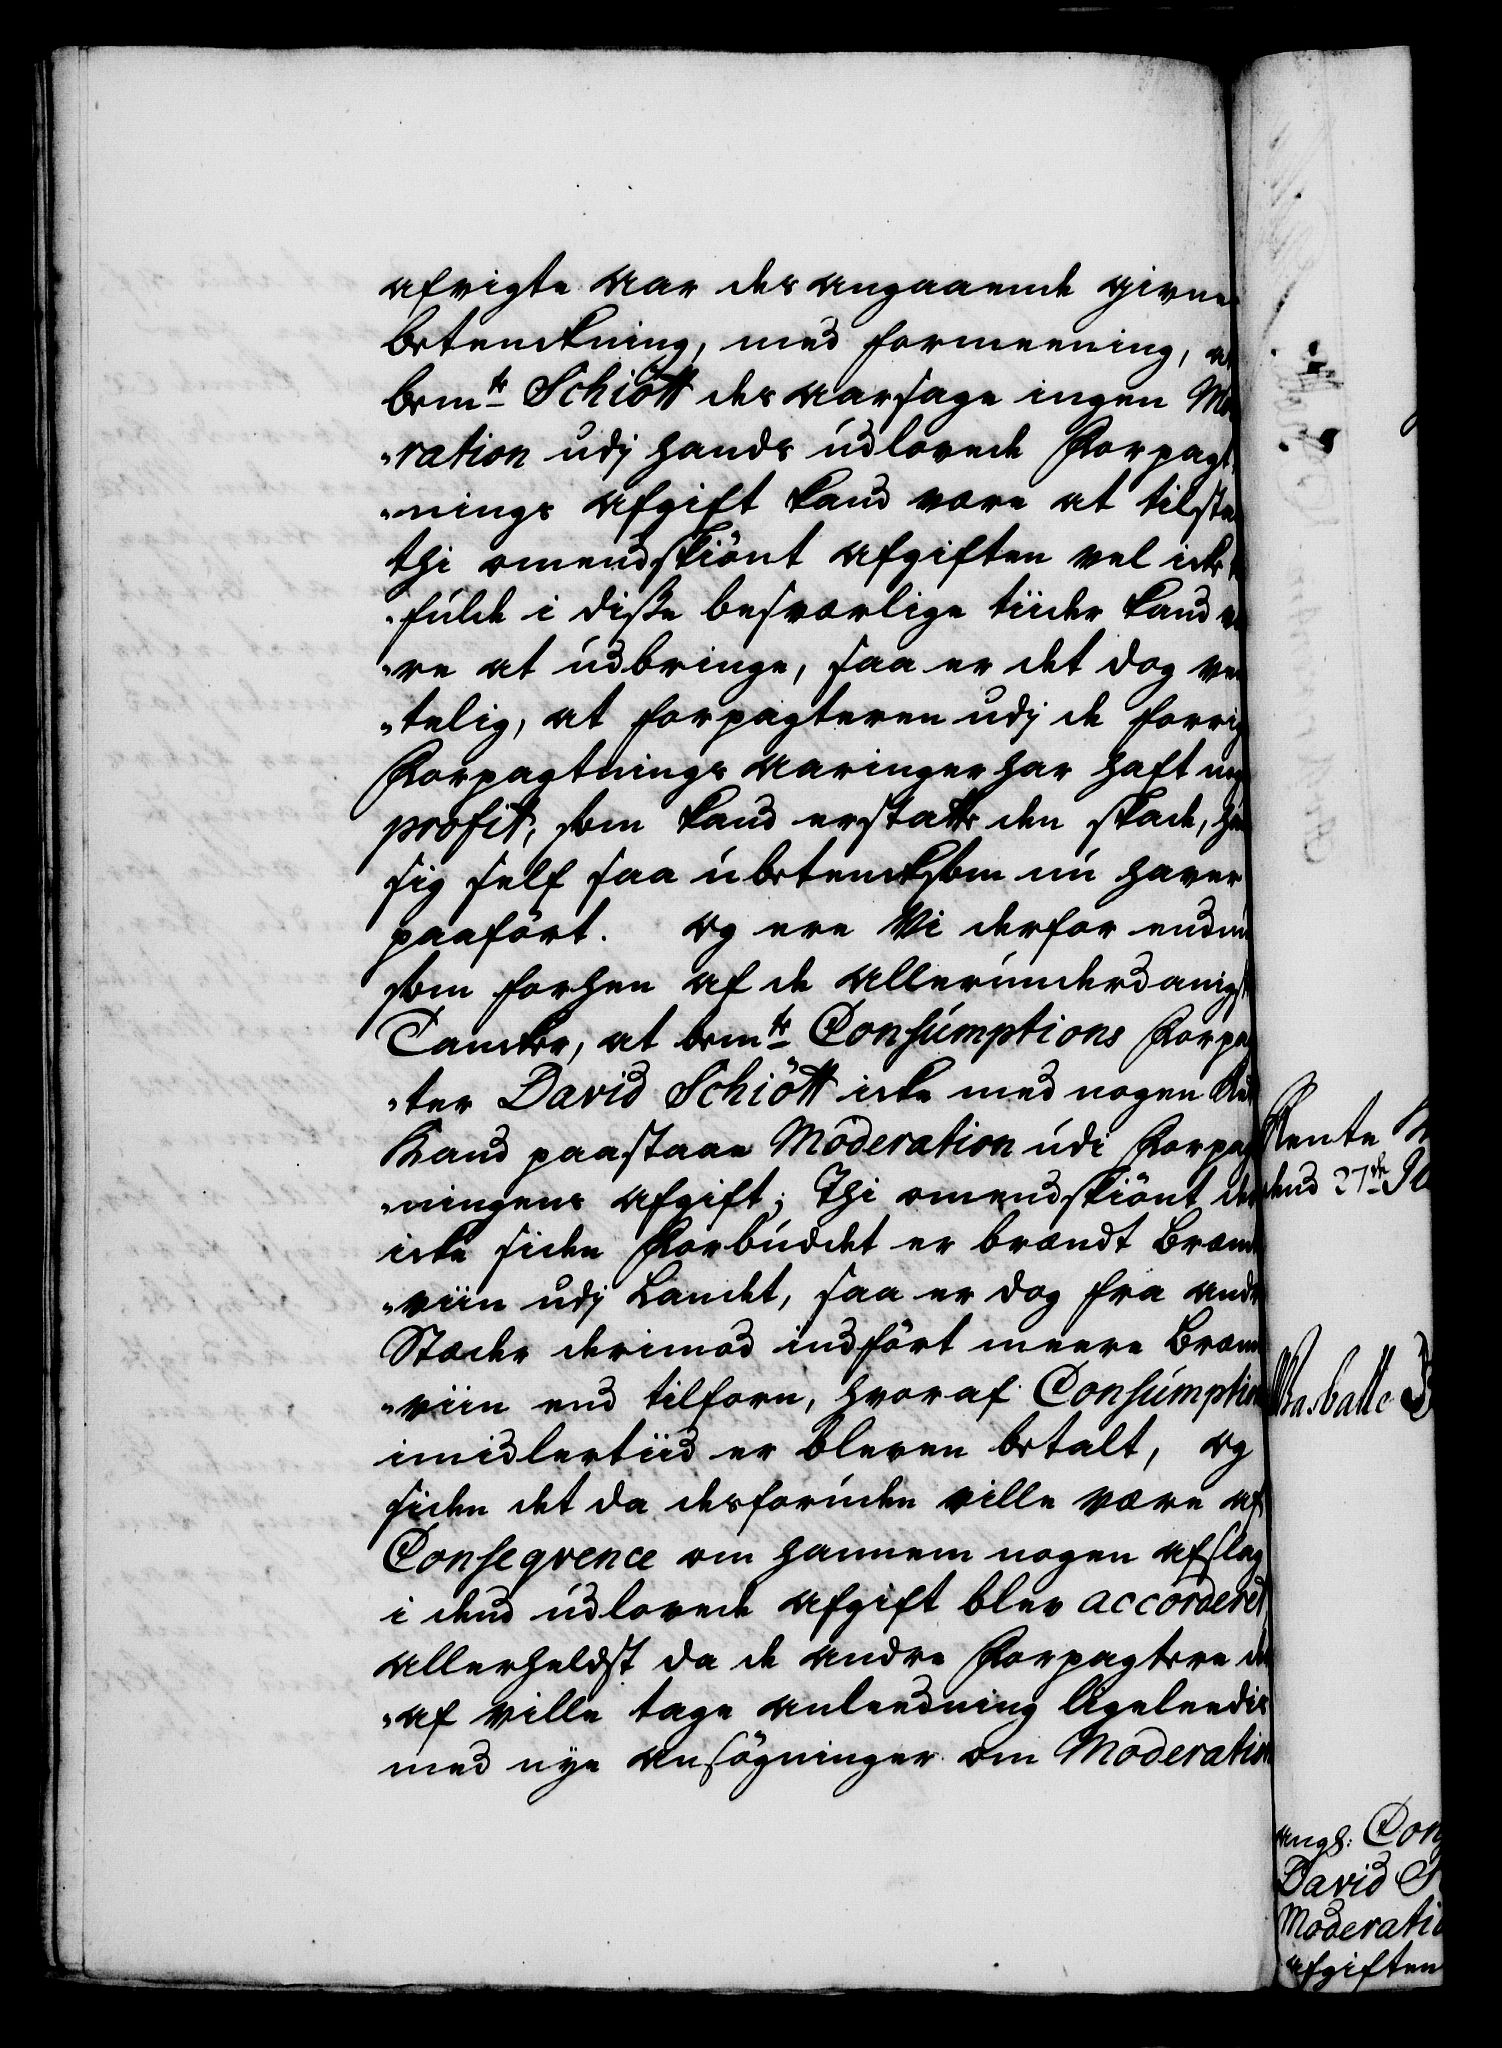 afvigte aar des angaaende givne
betenckning, med formeening, at
bem:te Schiött des aarsage ingen Mo
-ration udj hands udlovede Forpagt
-nings afgift kand være at tilstaa
thi omendskiönt afgiften vel icke
-fulde i disse besværlige tiider kand væ
-re at udbringe, saa er det dog ven
-telig, at forpagteren udj de forrig
Forpagtnings aaringer har haft
profitt, som kand erstatte den skade, hand
sig self saa ubetencksom nu haver
paafört. Og ere Vi derfor endnu
som forhen af de allerunderdanigst
Tancker, at bem:te Consumptions Forpag
-ter David Schiött icke med nogen
Kand paastaae Moderation udi Forpagt
-ningens afgift; Thi omendskiönt der
icke siden Forbuddet er brændt Brænde
-viin udj Landet, saa er dog fra andre
Stæder derimod indfört meere Brænde
-viin end tilforn, hvoraf Consumption
imidlertiid er bleven betalt, og
siden det da desforuden ville være af
Conseqvence om hannem nogen afslag
i dend udlovede afgift blev accorderet
allerheldst da de andre Forpagtere der
-af ville tage anleedning ligeleedis
med nye ansögninger om Moderation
Rente
dend 27de
David
Moderatio
afgiften